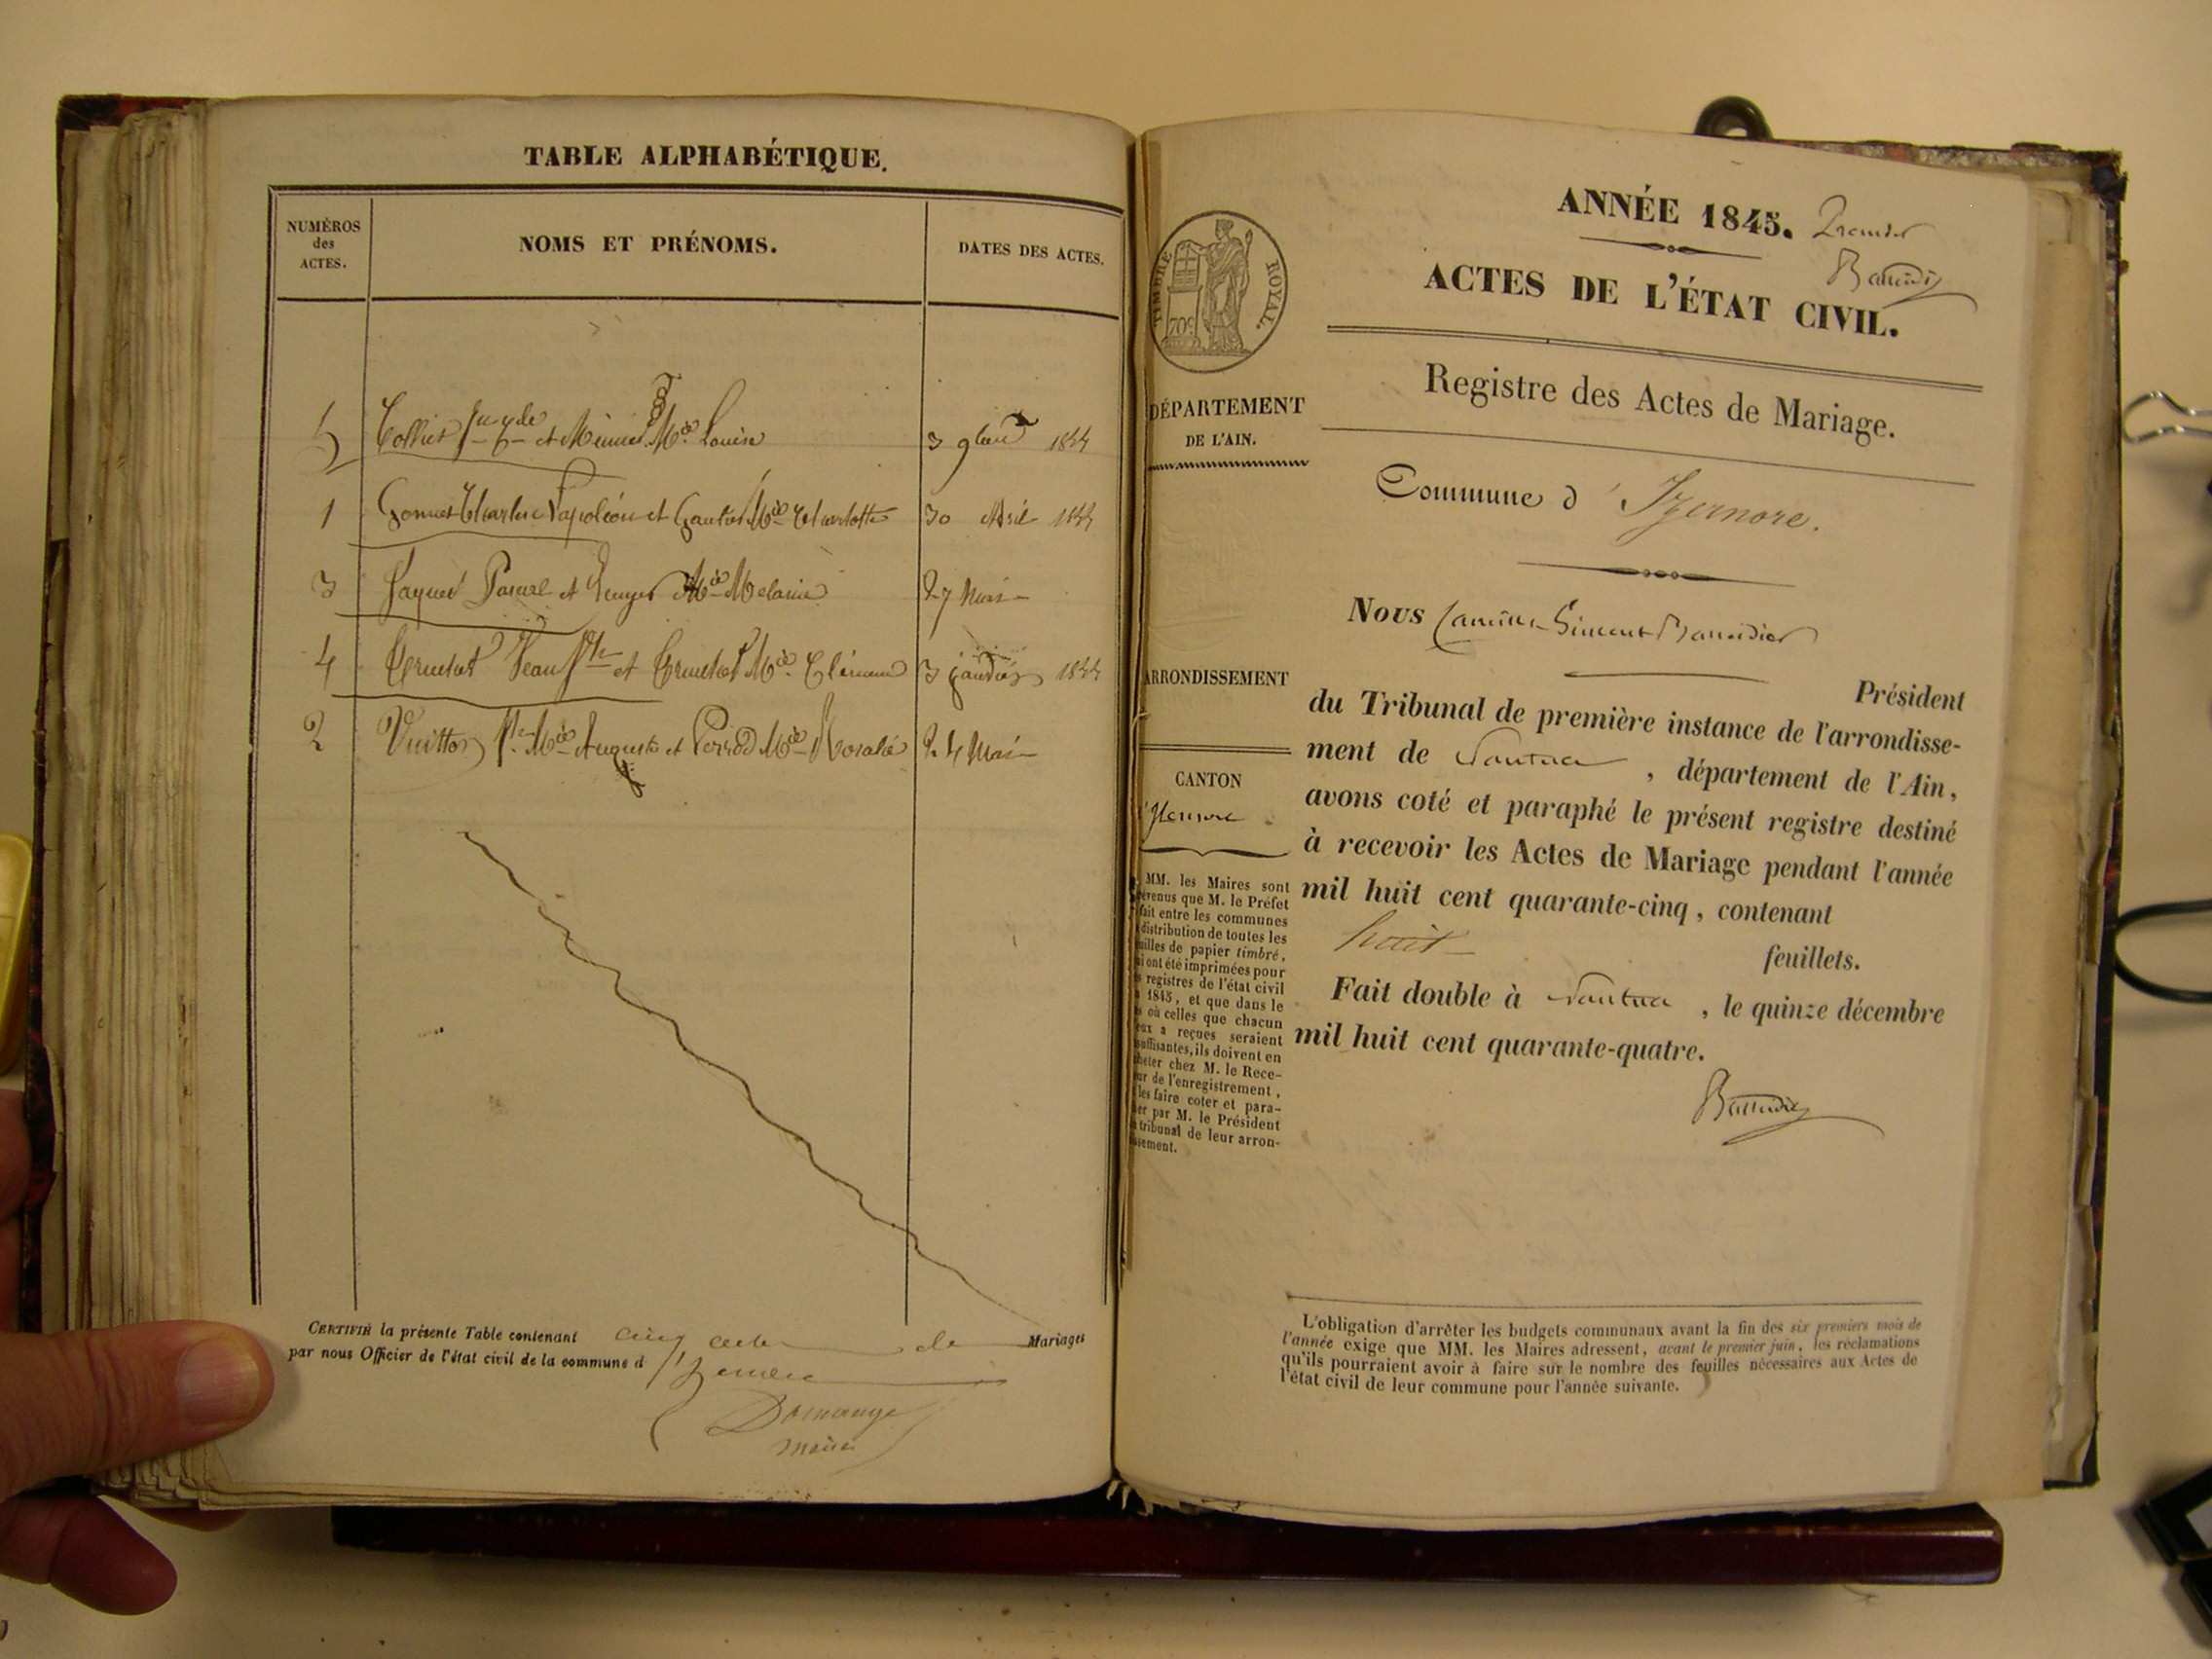 TABLE ALPHABÉTIQUE.
NUMÉROS
des
ACTES.
NOMS ET PRÉNOMS.
DATES DES ACTES.
5 et Mie Louise 3 9bre 1844
1 Charles Napoléon et Mie Charlotte 30 Avril 1844
3 et Mie Melanie 27 Mai
4 Jean et Mie 3 1844
2 Mie Auguste et Mie Rosalie 24 Mai
CERTIFIÉ la présente Table contenant cinq actes de Mariages
par nous Officier de l'état civil de la commune d'Izernore
Domange
Maire
ANNÉE 1845. Premier
ACTES DE L'ÉTAT CIVIL.
Registre des Actes de Mariage.
TIMBRE ROYAL.
70c
DÉPARTEMENT
DE L'AIN.
ARRONDISSEMENT
CANTON
d'Izernore
MM. les Maires sont
prévenus que M. le Préfet
fait entre les communes
distribution de toutes les
feuilles de papier timbré,
qui ont été imprimées pour
registres de l'état civil
1845, et que dans le
où celles que chacun
d'eux a reçues seraient
insuffisantes, ils doivent en
acheter chez M. le Rece-
veur de l'enregistrement,
les faire coter et para-
pher par M. le Président
tribunal de leur arron-
dissement.
Commune d'Izernore.
Nous
Président
du Tribunal de première instance de l'arrondisse-
ment de Nantua, département de l'Ain,
avons coté et paraphé le présent registre destiné
à recevoir les Actes de Mariage pendant l'année
mil huit cent quarante-cinq, contenant
huit feuillets.
Fait double à Nantua, le quinze décembre
mil huit cent quarante-quatre.
L'obligation d'arrêter les budgets communaux avant la fin des six premiers mois de
l'année exige que MM. les Maires adressent, avant le premier juin, les réclamations
qu'ils pourraient avoir à faire sur le nombre des feuilles nécessaires aux Actes de
l'état civil de leur commune pour l'année suivante.